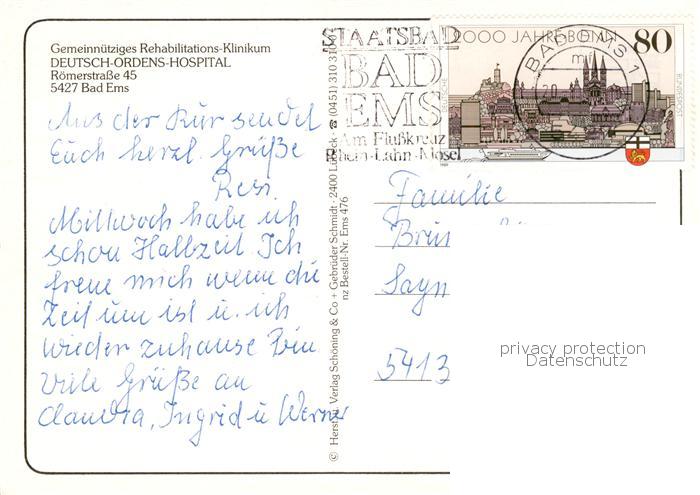 Gemeinnütziges Rehabilitations-Klinikum
DEUTSCH-ORDENS-HOSPITAL
Römerstraße 45
5427 Bad Ems
Aus der Kur sendet
Euch herzl. Grüße
Resi
Mittwoch habe ich
schon Halbzeit Ich
freue mich wenn die
Zeit um ist u. ich
wieder zuhause bin
Viele Grüße an
Claudia, Ingrid u Werner
© Herst. u. Verlag Schöning & Co + Gebrüder Schmidt · 2400 Lübeck · ☎ (0451) 310 31
nz Bestell-Nr. Ems 476
STAATSBAD
BAD
EMS
Am Flußkreuz
Rhein-Lahn-Mosel
2000 JAHRE BONN
80
DEUTSCHE BUNDESPOST
BAD EMS 1
Familie
Sayn
5413
privacy protection
Datenschutz